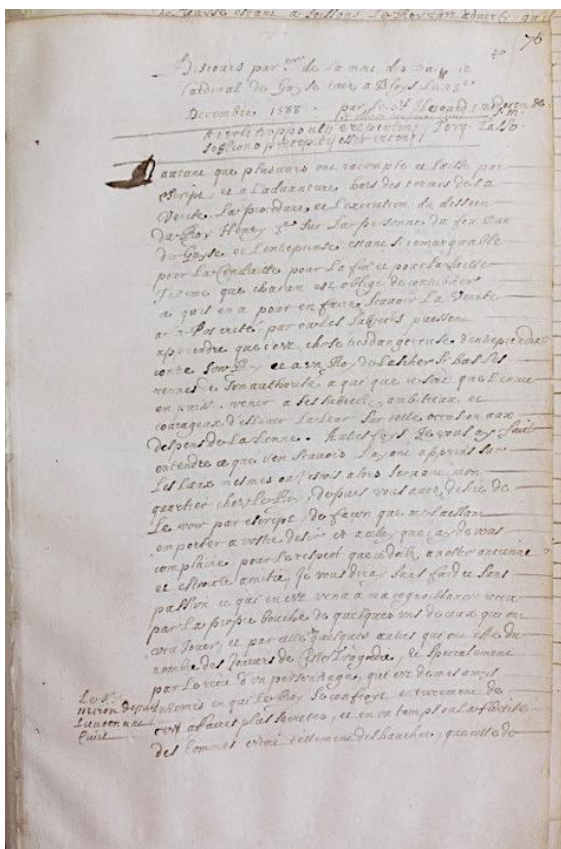 76
70
Discours par de la mort des
Cardinal de Guyse a Bloys le 23
Decembre 1588. par le Sr Medecin de
S.M.
Torq. Tasso
aucuns que plusieurs ont racompté et laissé par
escript, et a l'advanture hors des termes de la
Verité, La procedure et l'execution du dessein
du Roy Henry 3me sur la personne du feu Duc
de Guyse et l'entreprise estant si remarquable
pour la conduitte pour la fin et pour la suitte
que chacun est obligé de contribuer
ce qu'il en a pour en faire sçavoir la verité
a posterité, par ou les subiects puissent
apprendre que c'est chose tresdangereuse d'entreprendre
contre son Roy et a un Roy de lascher si bas les
rennes de son authorité a qui que ce soit que l'envie
en puisse venir a ses subiects ambitieux et
courageux d'eslever la leur sur telle occasion aux
despens de la sienne. Autresfoys Je vous ay faict
entendre ce que j'en sçavois l'ayant apprins sur
les lieux mesmes ou j'estois alors servant mon
quartier chez le Roy, depuis vous avez desiré de
le voir par escript, de façon que me laissant
emporter a vostre desir et a celuy que j'ay de vous
complaire pour le respect que je doibs a nostre ancienne
et estroitte amitié, Je vous diray sans fard et sans
passion ce qui en est venu a ma cognoissance
par la propre bouche de quelques uns de ceux qui ont
veu Jouer, et par celle quelques autres qui ont esté du
nombre des Joueurs de ceste Tragedie, et specialement
par le recit d'un personnage, qui est de mes amys
Le Sr
Miron depuis
Lieutenant
Civil
en qui le Roy se confioit entierement de
ses affaires plus secretes, et en un temps ou la fidelité
des hommes estoit tellement desbauchée, que celle de